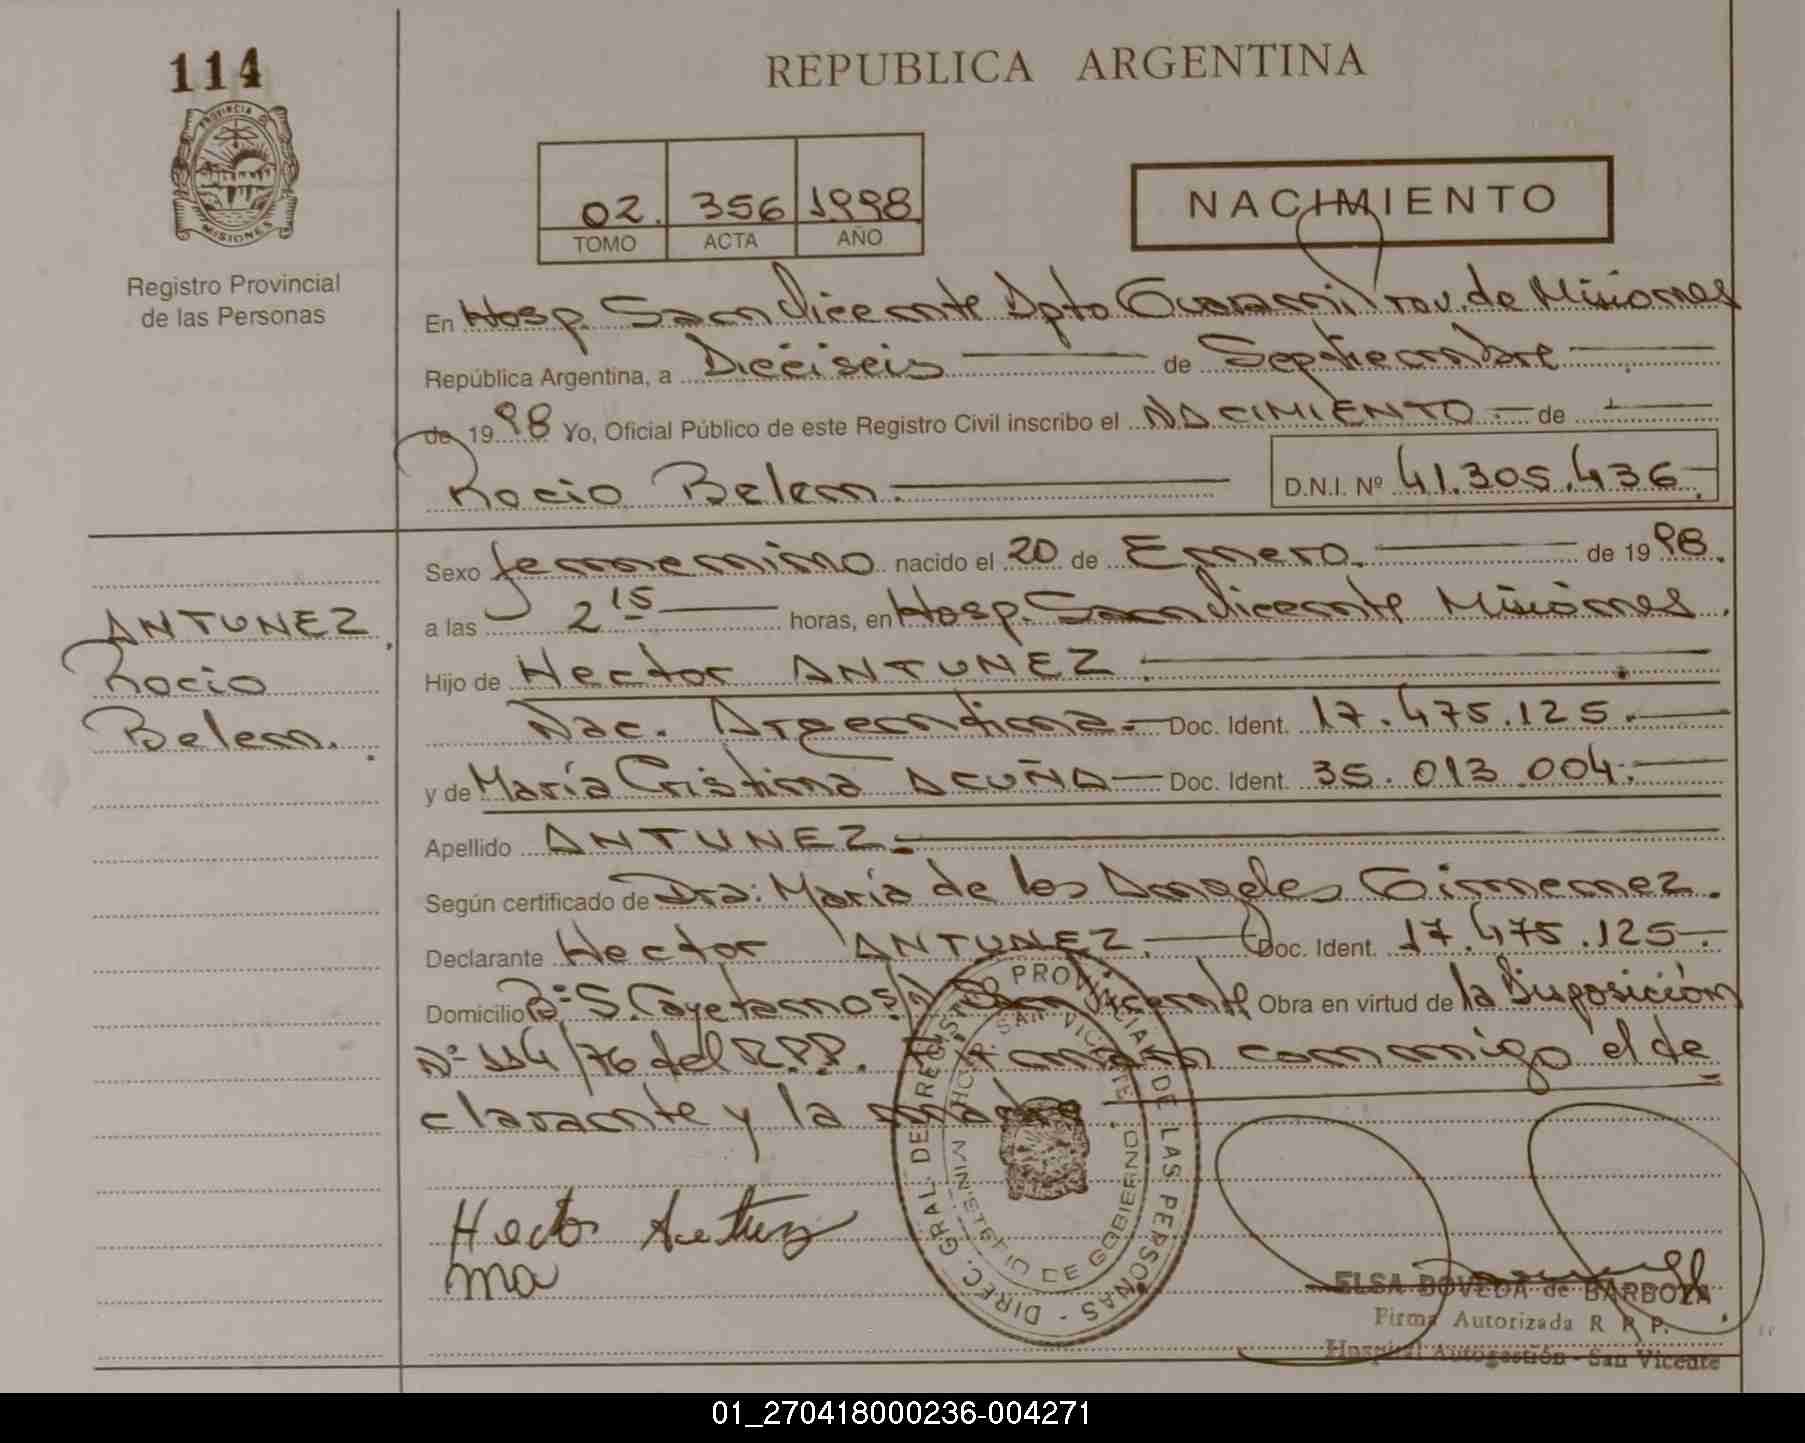 114
PROVINCIA DE
MISIONES
Registro Provincial
de las Personas
REPUBLICA ARGENTINA
02. 356 1998
TOMO ACTA AÑO
NACIMIENTO
En Hosp. San Vicente Dpto Guarani Prov. de Misiones
República Argentina, a Dieciseis de Septiembre
de 1998 Yo, Oficial Público de este Registro Civil inscribo el NACIMIENTO de
Rocio Belem. D.N.I. Nº 41.305.436
Sexo femenino nacido el 20 de Enero. de 1998.
a las 2 15 horas, en Hosp. San Vicente Misiones.
Hijo de Hector ANTUNEZ.
Nac. Argentina. Doc. Ident. 17.475.125.
y de María Cristina ACUÑA Doc. Ident. 35.013.004.
Apellido ANTUNEZ.
Según certificado de Dra: María de los Angeles Gimenez.
Declarante Hector ANTUNEZ Doc. Ident. 17.475.125
Domicilio Bº S. Cayetano S/N San Vicente Obra en virtud de la Disposición
Nº 114/76 del R.P.P. Firman conmigo el de
clarante y la madre
ANTUNEZ
Rocio
Belem.
Hector Antunez
ma
DIREC. GRAL. DE REGISTRO PROVINCIAL DE LAS PERSONAS -
HOSP. SAN VICENTE
MINISTERIO DE GOBIERNO
ELSA DOVEDA de BARBOZA
Firma Autorizada R. P. P.
Hospital Autogestión - San Vicente
01_270418000236-004271